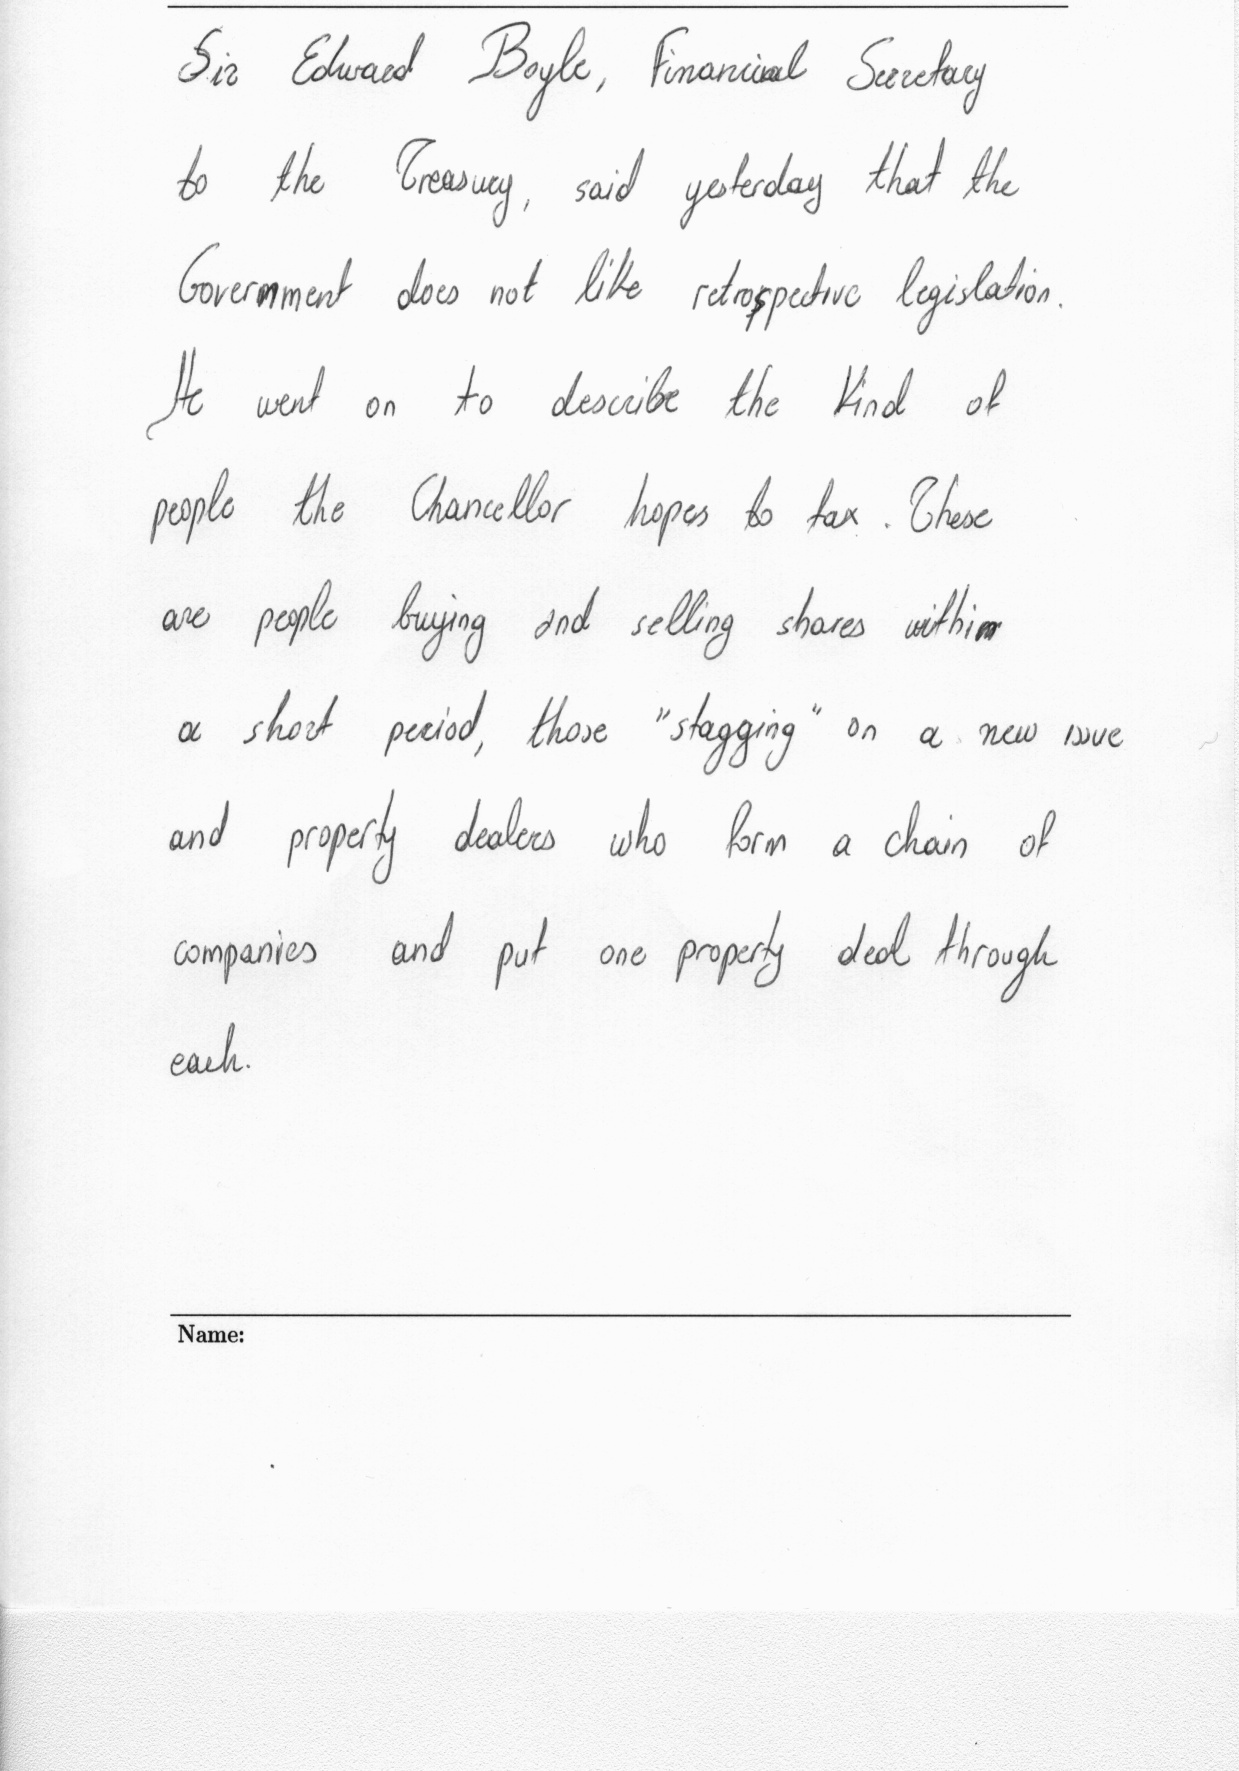 Sir Edward Boyle, Financial Secretary
to the Treasury, said yesterday that the
Government does not like retrospective legislation.
He went on to describe the kind of
people the Chancellor hopes to tax. These
are people buying and selling shares within
a short period, those "stagging" on a new issue
and property dealers who form a chain of
companies and put one property deal through
each.
Name: